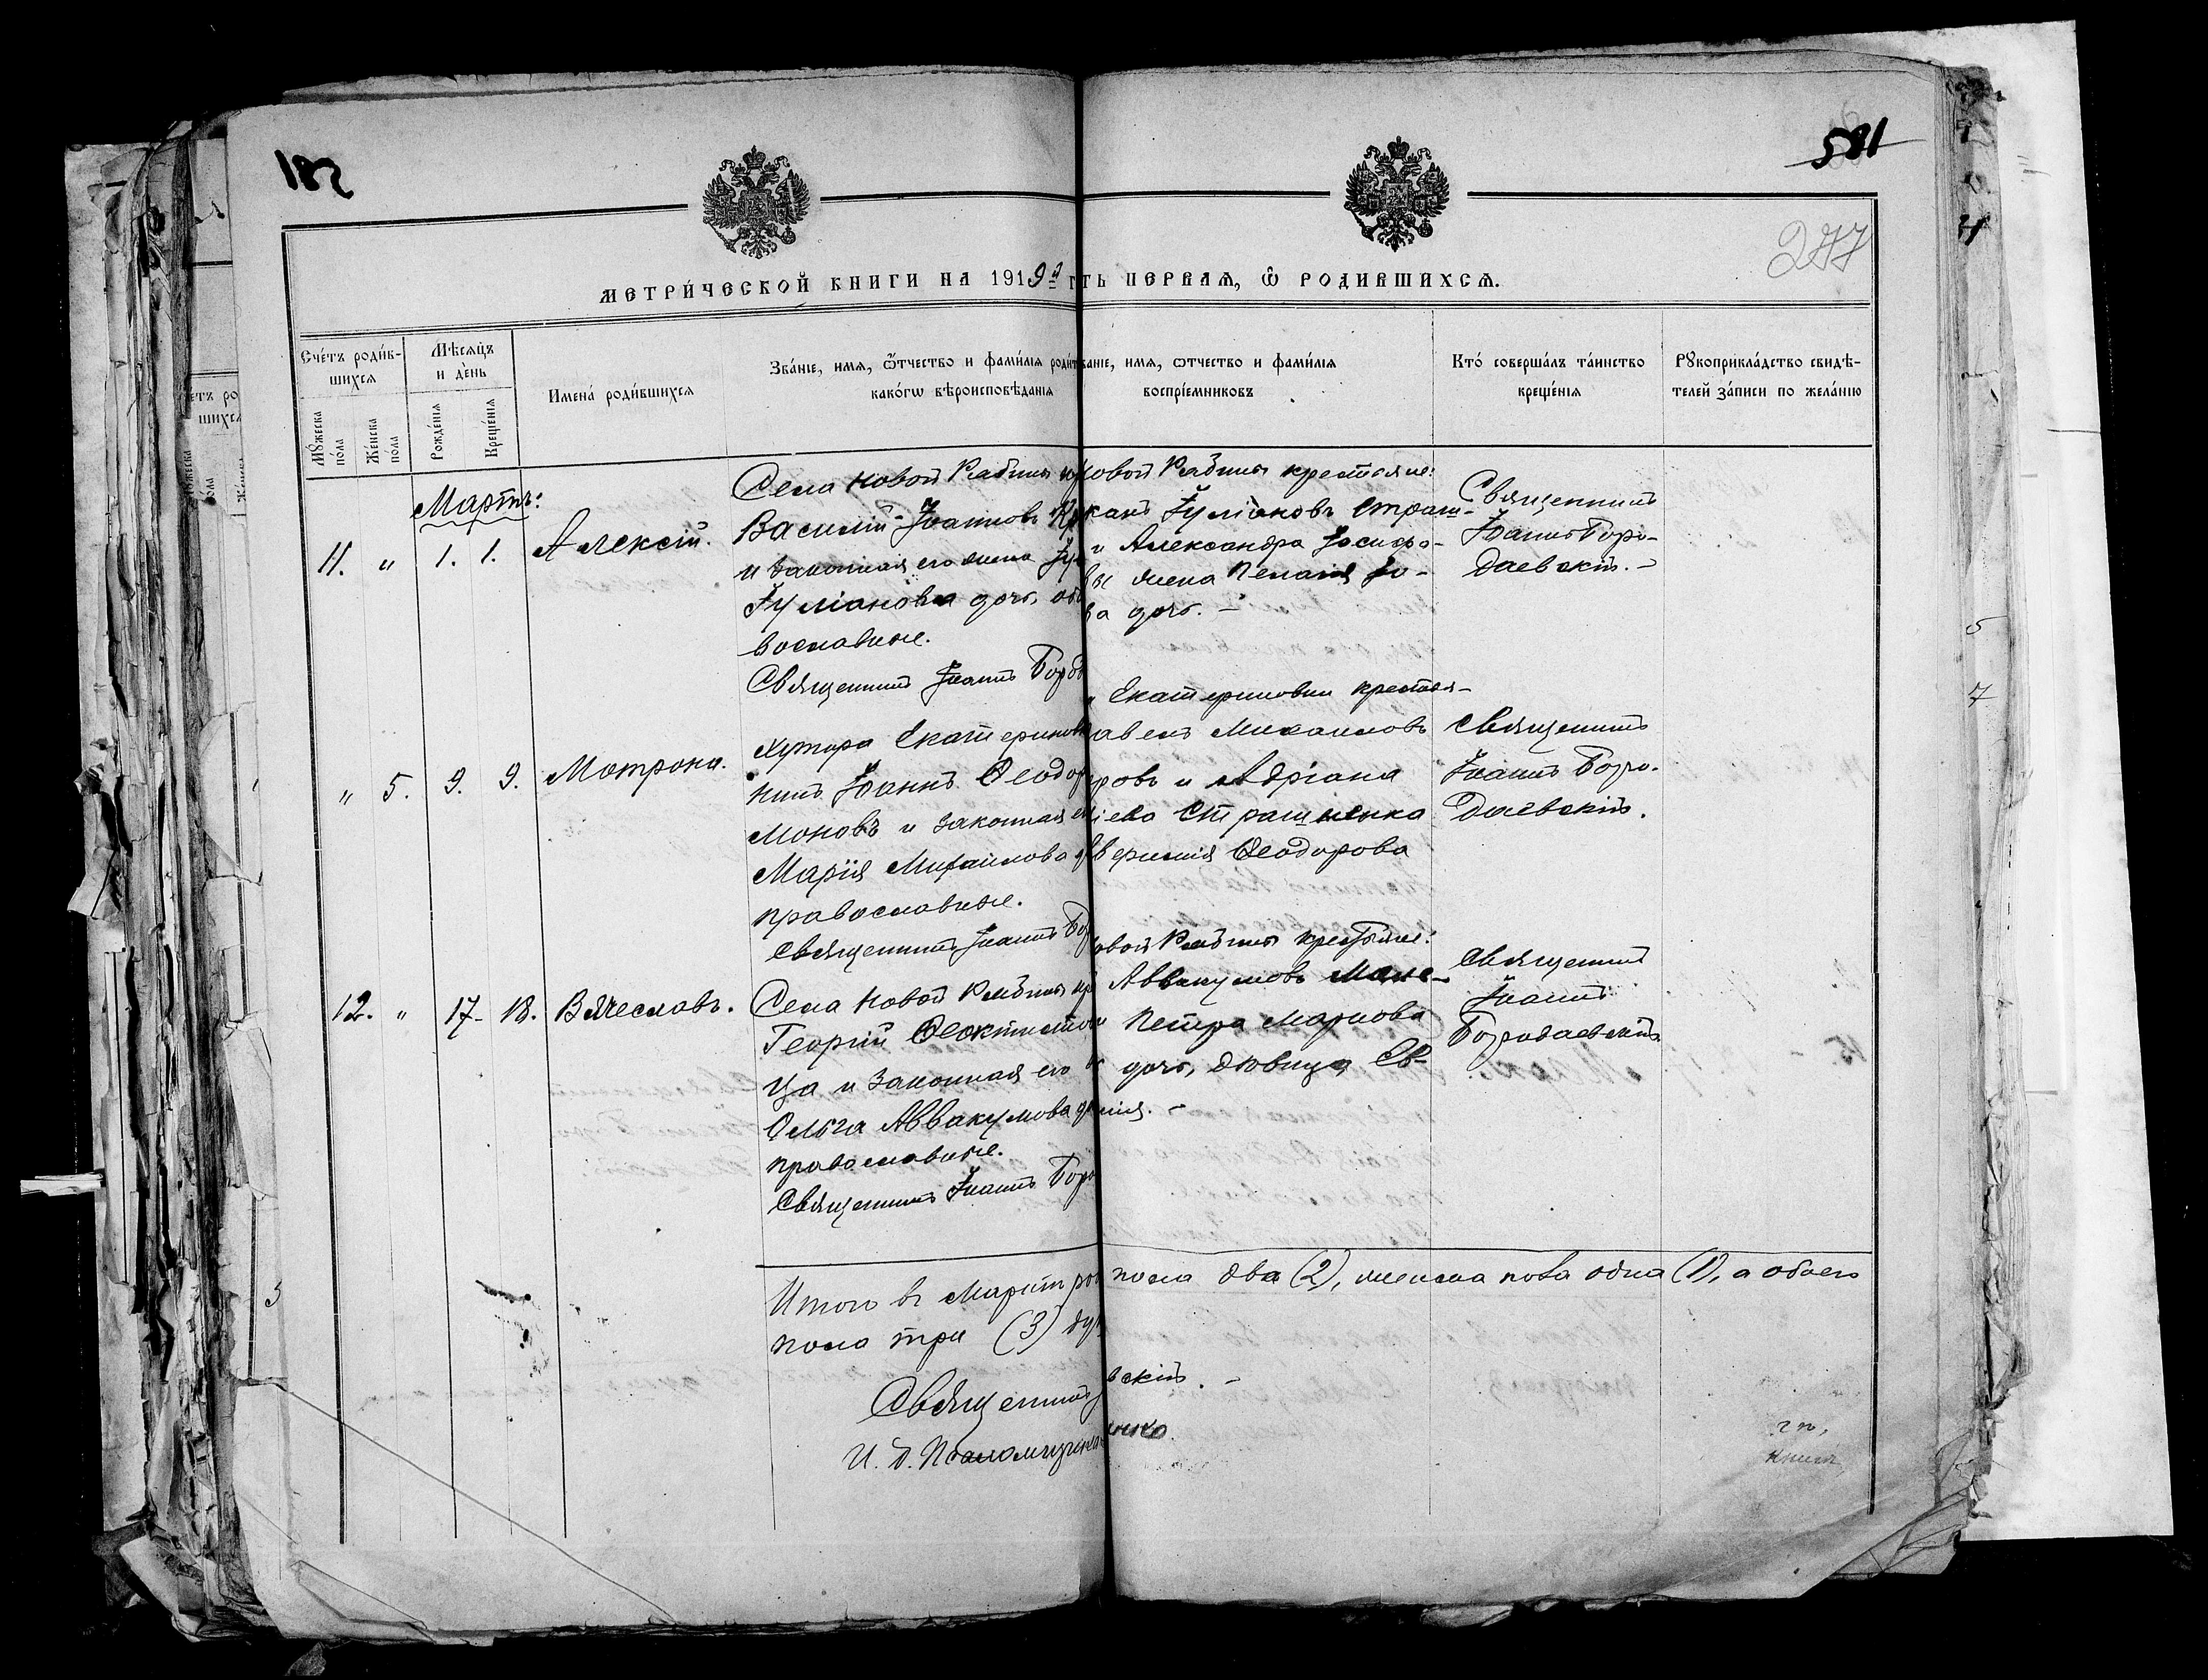 182
581
277
МЕТРИЧЕСКОЙ КНИГИ НА 1919 г
ть ПЕРВАЯ, Ѡ РОДИВШИХСЯ.
Счетъ родив-
шихся
Мѣсяцъ
и день
Имена родившихся
Званіе, имя, ѿчество и фамилія родит
какогѡ вѣроисповѣданія
ваніе, имя, ѡтчество и фамилія
воспріемниковъ
Кто совершалъ таинство
крещенія
Рꙋкоприкладство свидѣ-
телей записи по желанію
Мꙋжеска
пола
Женска
пола
Рожденія
Крещенія
Мартъ:
11. " 1. 1. Алексій.
Села Новой Рабины кр
Василій Іоанновъ Кр
и законная его жена Іу
Іуліанова дочь, об
вославные.
Священникъ Іоаннъ Боро
овой Рабины крестьяне:
канъ Іуліановъ Страш-
и Александра Іосифо-
вы жена Пелагія Іо-
ва дочь. –
Священникъ
Іоаннъ Боро-
даевскій. –
" 5. 9. 9. Матрона.
Хутора Екатериновк
нинъ Іоаннъ Ѳеодор
моновъ и законная е
Марія Михаилова д
православные.
Священникъ Іоаннъ Бор
Екатериновки крестья-
авелъ Михаиловъ
ровъ и Адріана
іева Страшненка
вимія Ѳеодорова
Священникъ
Іоаннъ Боро-
даевскій.
12. " 17- 18. Вячеславъ.
Села Новой Рабины кр
Георгій Ѳеоктистов
ца и законная его ж
Ольга Аввакумова д
православные.
Священникъ Іоаннъ Боро
овой Рабины крестьяне:
Аввакумовъ Мале-
и Петра Маркова
дочь, дѣвица Ев-
мія. –
Священникъ
Іоаннъ
Бородаевскій
Итого въ Мартѣ ро
пола два (2), женска пола одна (1), а обоего
пола три (3) ду
Священникъ
вскій. –
И. д. Псаломщика
енко